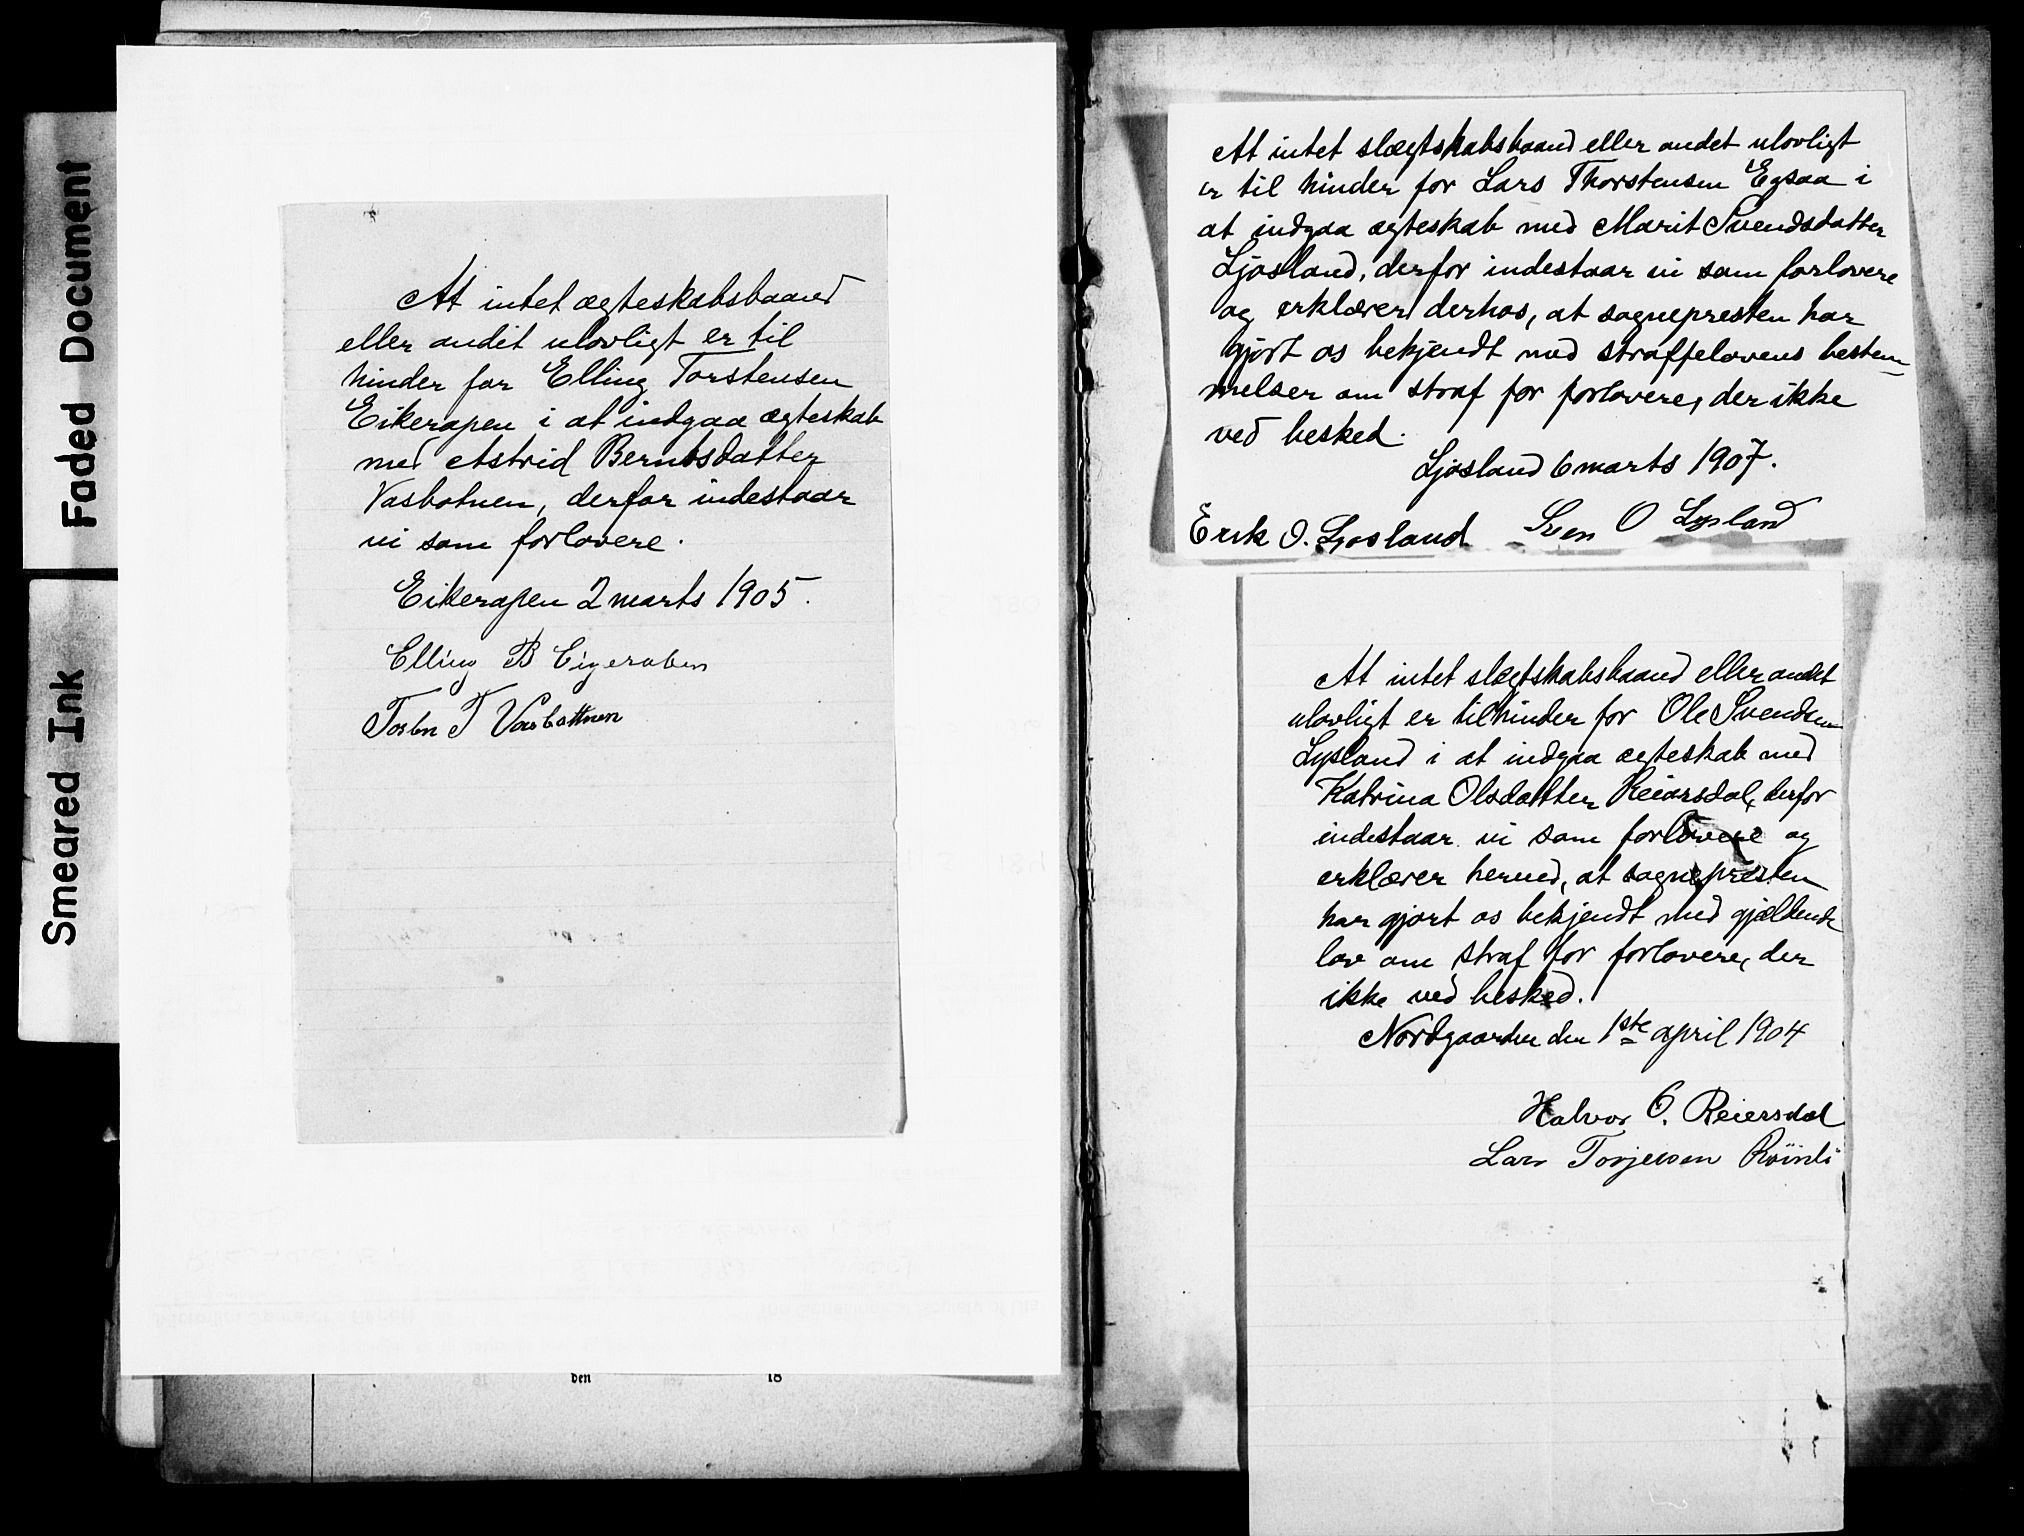 Faded Document
Smeared Ink
At intet ægteskabsbaand
eller andet ulovligt er til
hinder for Elling Torstensen
Eikerapen i at indgaa ægteskab
med Astrid Berntsdatter
Vasbotnen, derfor indestaar
vi som forlovere.
Eikerapen 2 marts 1905.
Elling B Eigeraben
T Vasbottnen
den 18
At intet slægtskabsbaand eller andet ulovligt
er til hinder for Lars Thorstensen Egsaa i
at indgaa ægteskab med Marit Svendsdatter
Ljosland, derfor indestaar vi som forlovere
og erklærer derhos, at sognepresten har
gjort os bekjendt med straffelovens bestem-
melser om straf for forlovere, der ikke
ved besked.
Ljosland 6 marts 1907.
Erik O. Ljosland Sven O Lysland
At intet slægtskabsbaand eller andet
ulovligt er til hinder for Ole Svendsen
Lysland i at indgaa ægteskab med
Katrina Olsdatter Reiarsdal, derfor
indestaar vi som forlovere og
erklærer herved, at sognepresten
har gjort os bekjendt med gjældende
lov om straf for forlovere, der
ikke ved besked.
Nordgaarden den 1ste april 1904
Halvor O. Reiersdal
Lars Torjersen Röinli